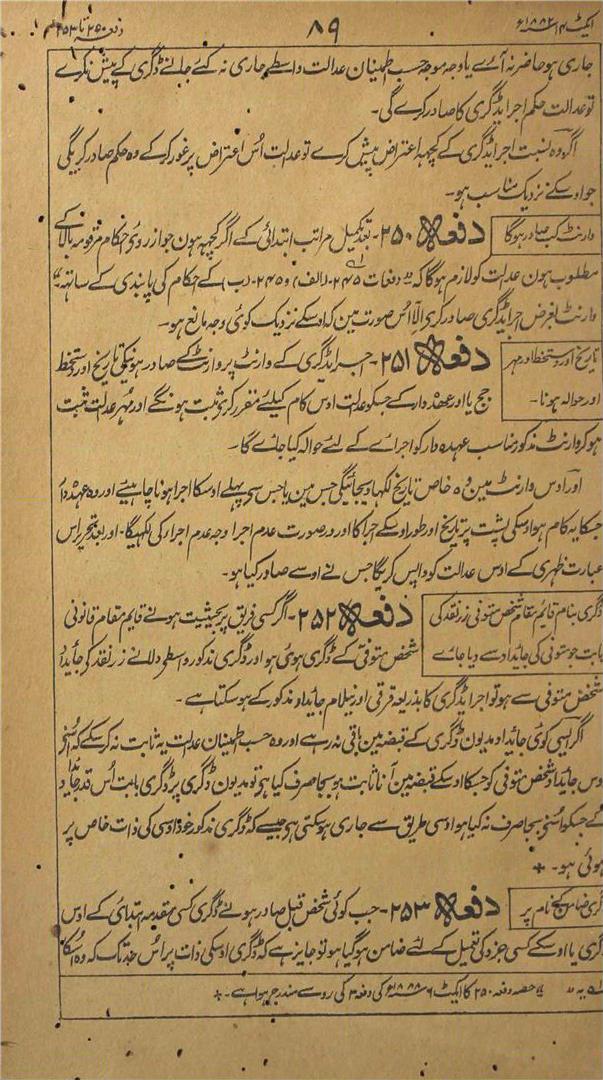 ایکٹ ۱۴ ۱۸۸۲ء
۸۹
دفعہ ۲۵۰ تا ۲۵۳
جاری ہو حاضر نہ آوے یا وجہ موجہ حسب اطمینان عدالت واسطے جاری نہ کئے جانے ڈگری کے پیش نکرے
تو عدالت حکم اجرایڈگری کا صادر کرے گی۔
اگر وہ نسبت اجرایڈگری کے کچہہ اعتراض پیش کرے تو عدالت اُس اعتراض پر غور کرکے وہ حکم صادر کریگی
جو اوسکے نزدیک مناسب ہو۔
وارنٹ کب صادر ہوگا
دفعہ ۲۵۰۔ بعد تکمیل مراتب ابتدائی کے اگر کچہہ ہون جو از روی احکام مرقومہ بالا کے
مطلوب ہون عدالت کو لازم ہوگا کہ دفعات ۲۴۵ (الف) و ۲۴۵ (ب) کے احکام کی پابندی کے ساتھہ
وارنٹ بغرض اجرایڈگری صادر کری الّا اُس صورت مین کہ اوسکے نزدیک کوئی وجہ مانع ہو۔
تاریخ اور دستخط اور مہر
اور حوالہ ہونا۔
دفعہ ۲۵۱۔ اجرایڈگری کے وارنٹ پر وارنٹ کے صادر ہونیکی تاریخ اور دستخط
جج یا اور عہدہ دار کے جسکو عدالت اوس کام کیلئے مقرر کری ثبت ہونگے اور مُہر عدالت ثبت
ہو کر وارنٹ مذکور مناسب عہدہ دار کو اجراے کے لئے حوالہ کیا جاے گا۔
اور اوس وارنٹ مین وہ خاص تاریخ لکہا دیجائیگی جس مین یا جس سی پہلے اوسکا اجرا ہونا چاہیئے اور وہ عہدہ دار
جسکا یہ کام ہو اوسکی پشت پر تاریخ اور طور اوسکے اجرا کا اور در صورت عدم اجرا وجہ عدم اجرار کی لکہیگا۔ اور بعد تحریر اس
عبارت ظہری کے اوس عدالت کو واپس کریگا جس نے اوسے صادر کیا ہو۔
ڈگری بنام قایم مقام شخص متوفی زر نقد کی
بابت جو متوفی کی جائداد سے دیا جاے
دفعہ ۲۵۲۔ اگر کسی فریق پر بحیثیت ہونے قایم مقام قانونی
شخص متوفی کے ڈگری ہوی ہو اور ڈگری مذکور واسطے دلانے زر نقد کی جایداد
شخص متوفی سے ہو تو اجرایڈگری کا بذریعہ قرقی اور نیلام جایداد مذکور کے ہو سکتا ہے۔
اگر ایسی کوئی جایداد مدیون ڈگری کے قبضہ مین باقی نہ رہے اور وہ حسب اطمینان عدالت یہ ثابت نہ کر سکے کہ اُسنے
اوس جایداد شخص متوفی کو جسکا اوسکے قبضہ مین آنا ثابت ہو بجا صرف کیا ہی تو مدیون ڈگری پر ڈگری بابت اُس قدر جایداد
کے جسکو اُسنی بجا صرف نہ کیا ہو اوسی طریق سے جاری ہو سکتی ہی جیسے کہ ڈگری مذکور خود اوسی کی ذات خاص پر
ہوئی ہو۔
ڈگری ضامن کے نام پر
دفعہ ۲۵۳۔ جب کوئی شخص قبل صادر ہونے ڈگری کسی مقدمہ ابتدائی کے اوس
ڈگری یا اوسکے کسی جزو کی تعمیل کے لئے ضامن ہو گیا ہو تو جایز ہے کہ ڈگری اوسکی ذات پر اُس حد تک کہ وہ اُسکا
یہ حصہ دفعہ ۲۵۰ کا ایکٹ ۶ ۱۸۸۸ء کی دفعہ ۳ کی رو سے مندرج ہوا ہے۔